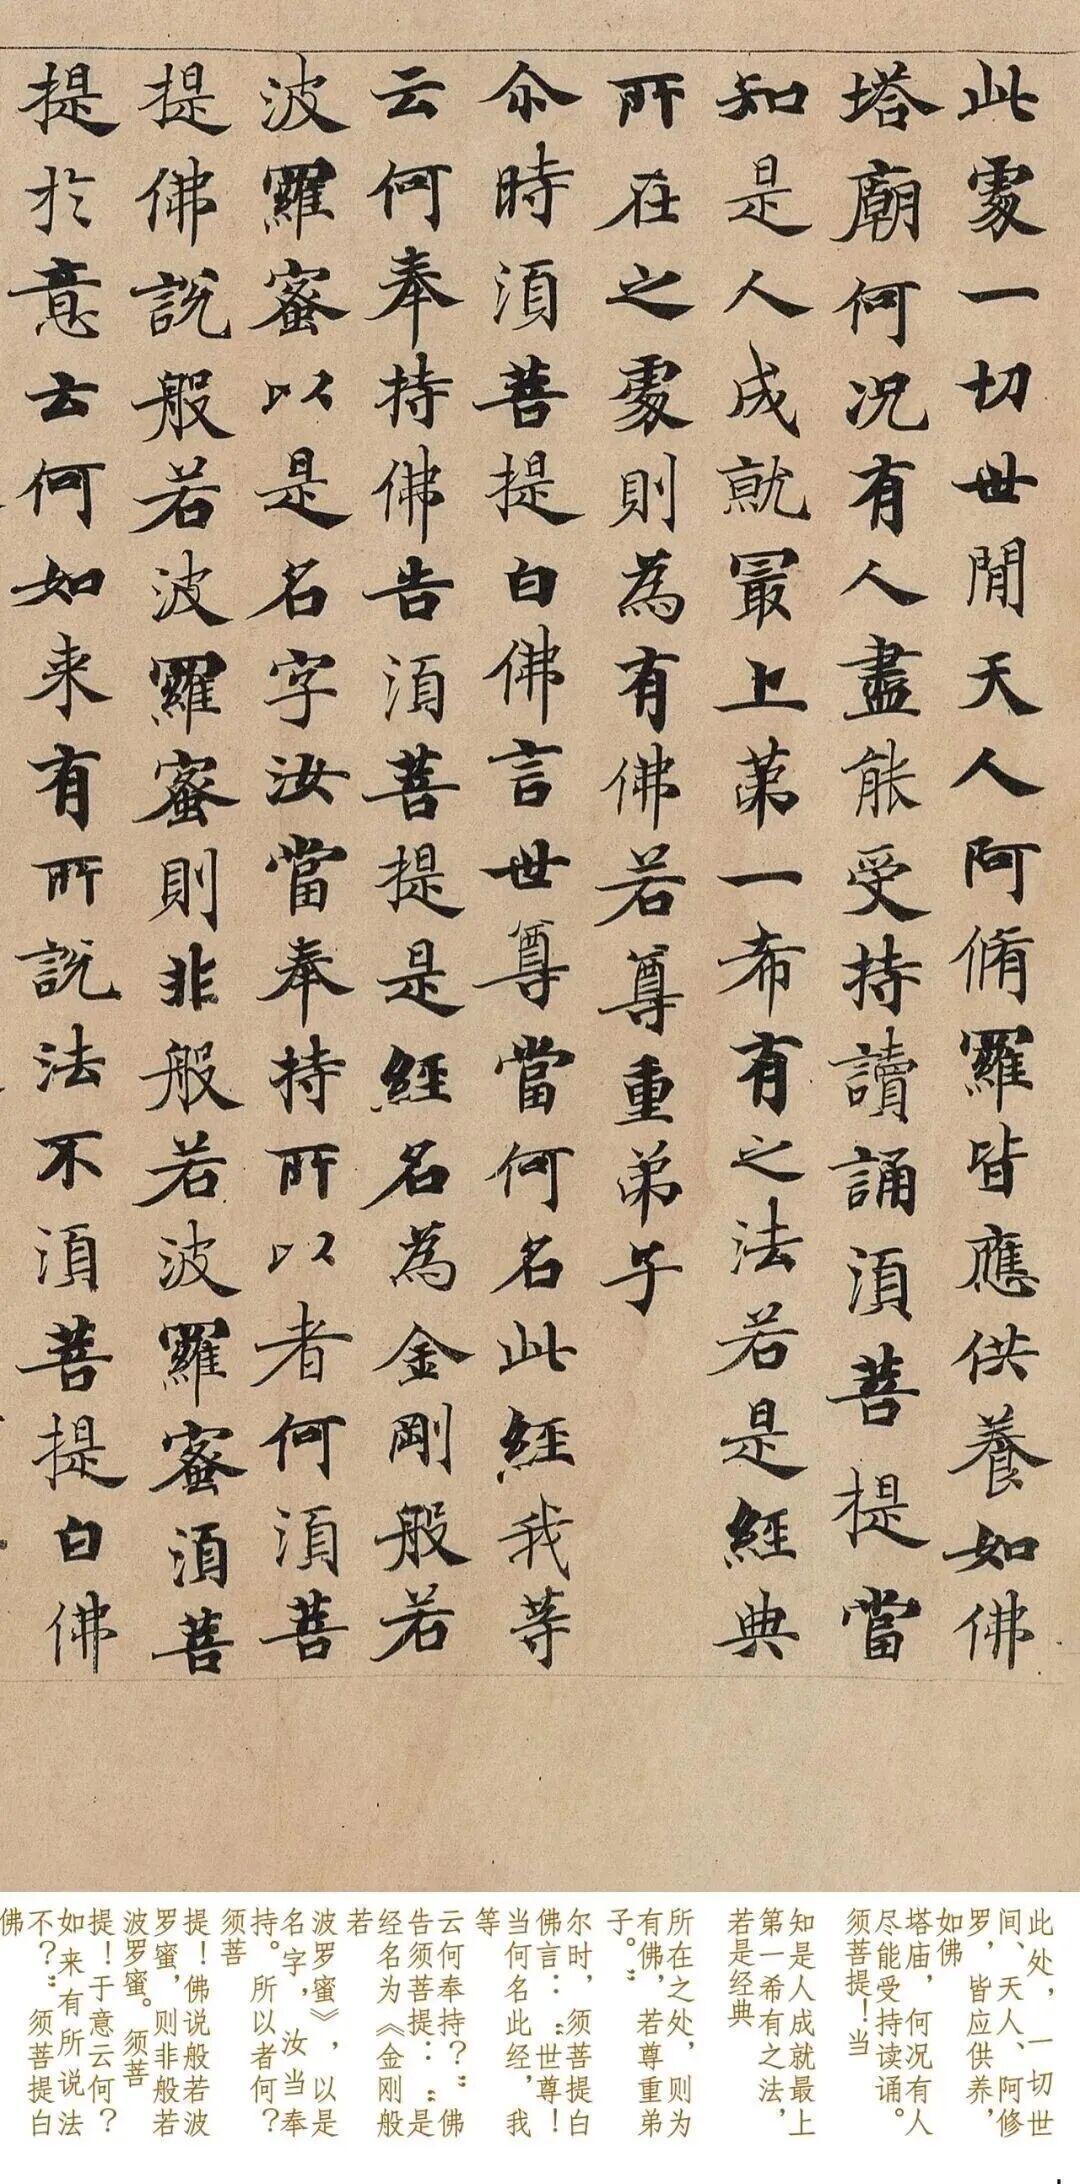 此處一切世間天人阿脩羅皆應供養如佛
塔廟何況有人盡能受持讀誦須菩提當
知是人成就最上第一希有之法若是經典
所在之處則為有佛若尊重弟子
尒時須菩提白佛言世尊當何名此經我等
云何奉持佛告須菩提是經名為金剛般若
波羅蜜以是名字汝當奉持所以者何須菩
提佛說般若波羅蜜則非般若波羅蜜須菩
提於意云何如来有所說法不須菩提白佛
此处，一切世
间、天人、阿修
罗，皆应供养，
如佛
塔庙，何况有人
尽能受持读诵。
须菩提！当
知是人成就最上
第一希有之法，
若是经典
所在之处，则为
有佛，若尊重弟
子。”
尔时，须菩提白
佛言：“世尊！
当何名此经，我
等
云何奉持？”佛
告须菩提：“是
经名为《金刚般
若
波罗蜜》，以是
名字，汝当奉
持。所以者何？
须菩
提！佛说般若波
罗蜜，则非般若
波罗蜜。须菩
提！于意云何？
如来有所说法
不？”须菩提白
佛